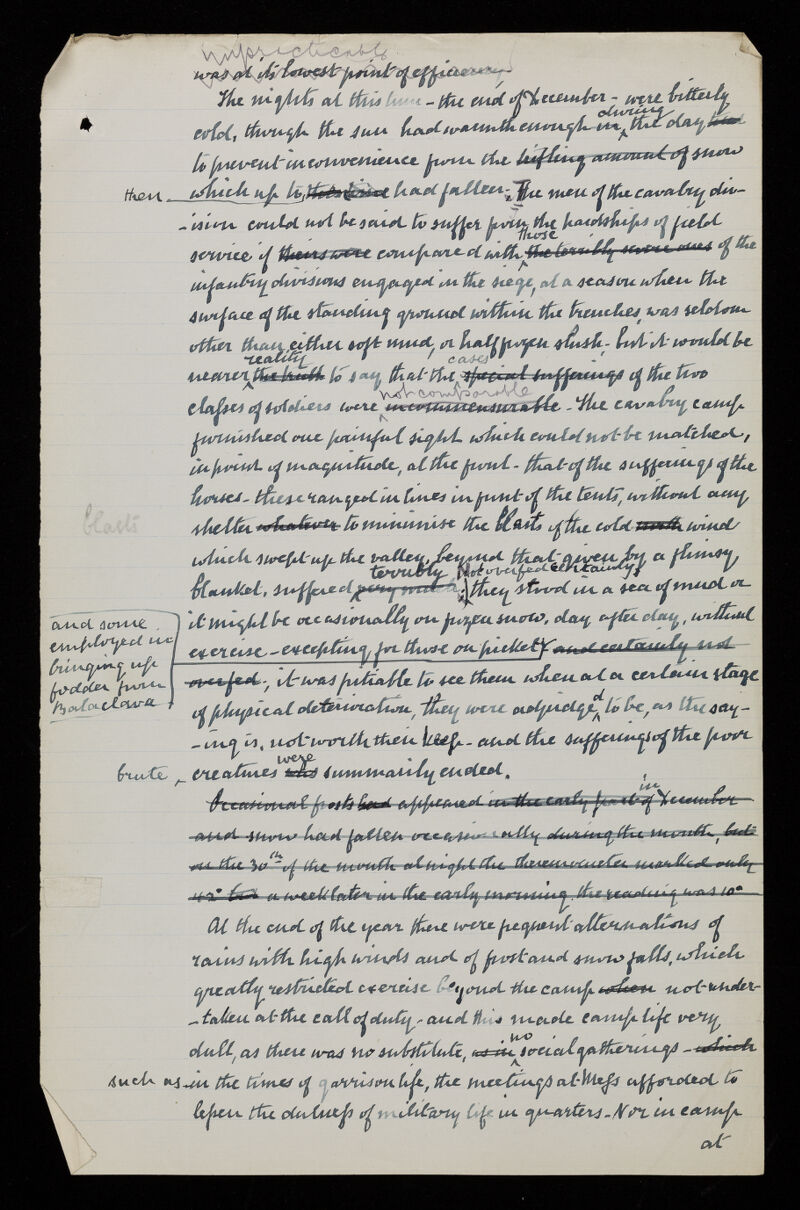 impracticable
was at its lowest point of efficiency
The nights at this time - the end of December - were bitterly
during
cold, though the sun had warmth enough in the day had
to prevent inconvenience from the trifling amount of snow
then which up to this time had fallen; The men of the cavalry div-
-ision could not be said to suffer from the hardships of field
those
service if theirs were compared with the terribly severe ones of the
infantry divisions engaged in the siege, at a season when the
surface of the standing ground within the trenches, was seldom
other than either soft mud, or half frozen slush - but it would be
reality cases
nearer the truth to say that the special sufferings of the two
not comparable
classes of soldiers were incommensurable - The cavalry camp
furnished one painful sight which could not be matched,
in point of magnitude, at the front - that of the sufferings of the
horses - these ranged in lines in front of the tents, without any
blasts
shelter whatever to minimise the blasts of the cold north wind
which swept up the valley, beyond that given by a flimsy
terribly Not overfed certainly,
blanket, suffered very much; they stood in a sea of mud or
it might be occasionally on frozen snow, day after day, without
and some
employed in
bringing up
fodder from
Balaclava
exercise - excepting for those on picket, and certainly not
overfed -, it was pitiable to see them when at a certain stage
of physical deterioration, they were adjudged to be, as the say-
-ing is, not worth their keep - and the sufferings of the poor
were
brute creatures was summarily ended.
in
Occasional frosts had appeared in the early part of December
and snow had fallen occasionally during the month, but
on the 30th of the month at night the thermometer marked only
42° but a week later in the early morning, the reading was 10°
At the end of the year there were frequent alternations of
rains with high winds and of frost and snow falls, which
greatly restricted exercise beyond the camp when not under-
-taken at the call of duty - and this made camp life very
no
dull, as there was no substitute, as in social gatherings - which
such as in the times of garrison life, the meetings at Mess afforded to
lessen the dulness of military life in quarters - Nor in camp
at